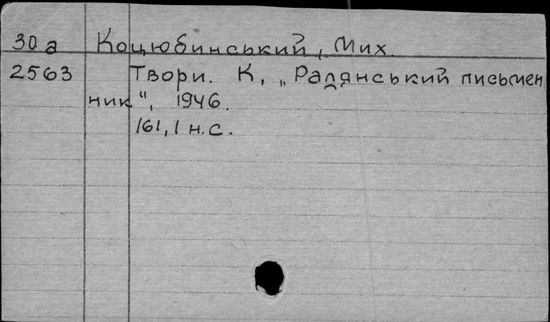 30а Коцюбинський, Мих.
2563 Твори. К, „Радянський письмен
ник“, 1946.
161, 1 н.с.